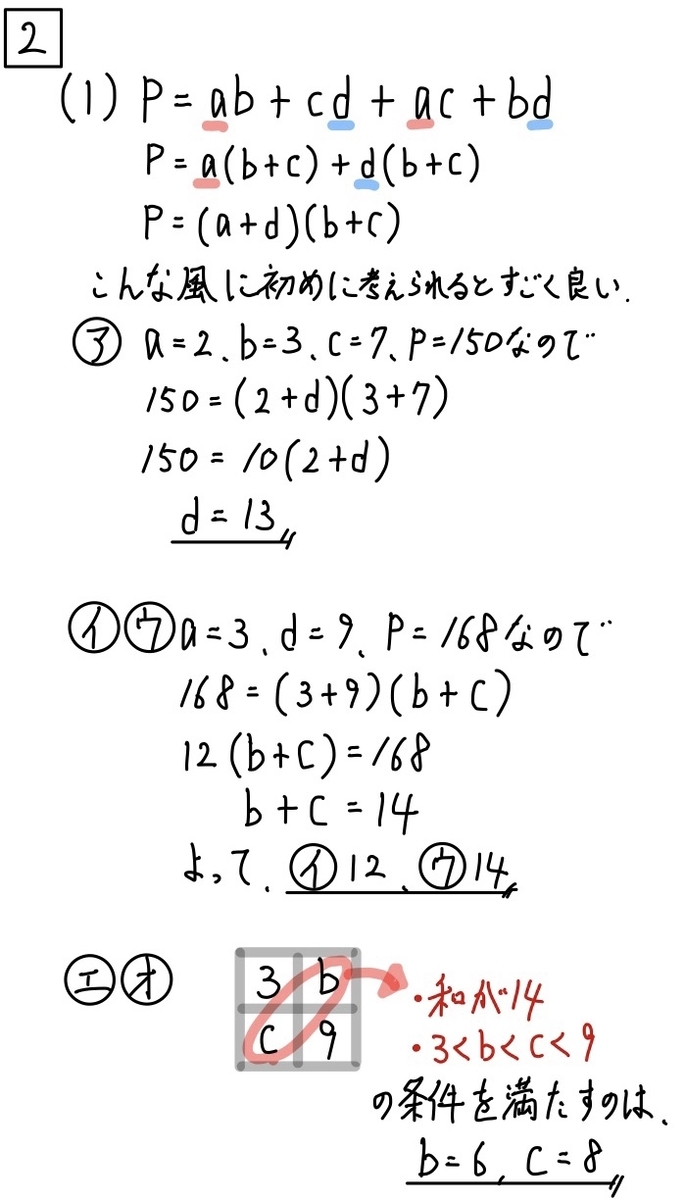 2
(1) P = ab + cd + ac + bd
P = a(b+c) + d(b+c)
P = (a+d)(b+c)
こんな風に初めに考えられるとすごく良い.
㋐ a=2、b=3、c=7、P=150なので
150 = (2+d)(3+7)
150 = 10(2+d)
d = 13
㋑㋒ a=3、d=9、P=168なので
168 = (3+9)(b+c)
12(b+c) = 168
b+c = 14
よって、㋑12、㋒14
㋓㋔
3 b
c 9
・和が14
・3<b<c<9
の条件を満たすのは、
b=6, c=8